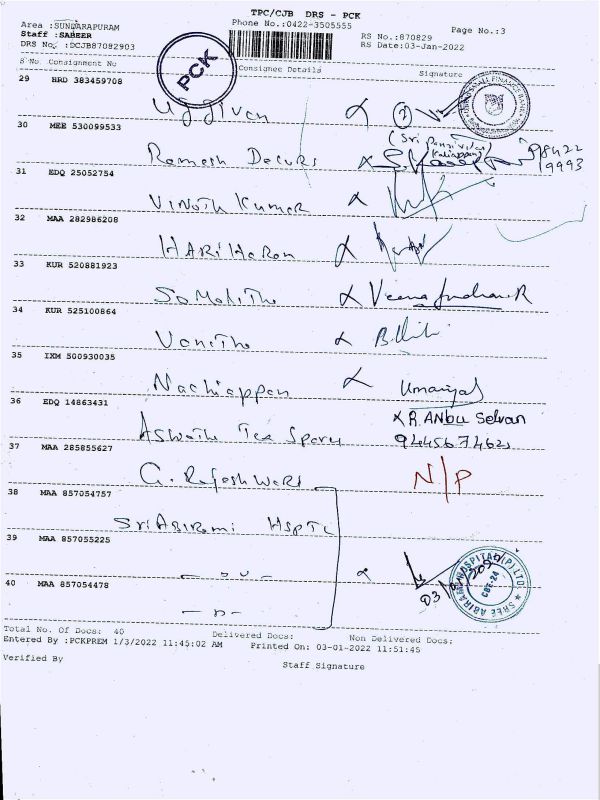 TPC/CJB DRS - PCK
Area :SUNDARAPURAM
Phone No.:0422-3505555
Page No.:3
Staff :SABEER
RS No.:870829
DRS No. :DCJB87082903
RS Date:03-Jan-2022
S No. Consignment No
Consignee Details
Signature
PCK
29 HRD 383459708
Ujjivan
30 MEE 530099533
Ramesh
98422
19993
31 EDQ 25052754
Vinoth Kumar
32 MAA 282986208
HARIHARAN
33 KUR 520881923
34 KUR 525100864
Vanitha
35 IXM 500930035
Nachiappan
36 EDQ 14863431
R.ANbu Selvan
Aswath Tex
37 MAA 285855627
G. Rajeshwari
N/P
38 MAA 857054757
Sri Abirami Hsptl
39 MAA 857055225
40 MAA 857054478
Total No. Of Docs: 40
Delivered Docs:
Non Delivered Docs:
Entered By :PCKPREM 1/3/2022 11:45:02 AM
Printed On: 03-01-2022 11:51:45
Verified By
Staff Signature